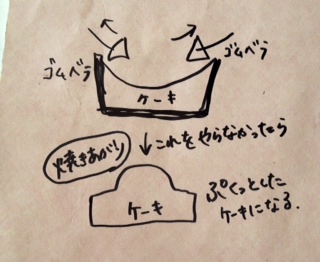 ゴムベラ
ゴムベラ
ケーキ
これをやらなかったら
焼きあがり
ケーキ
ぷくっとした
ケーキになる.